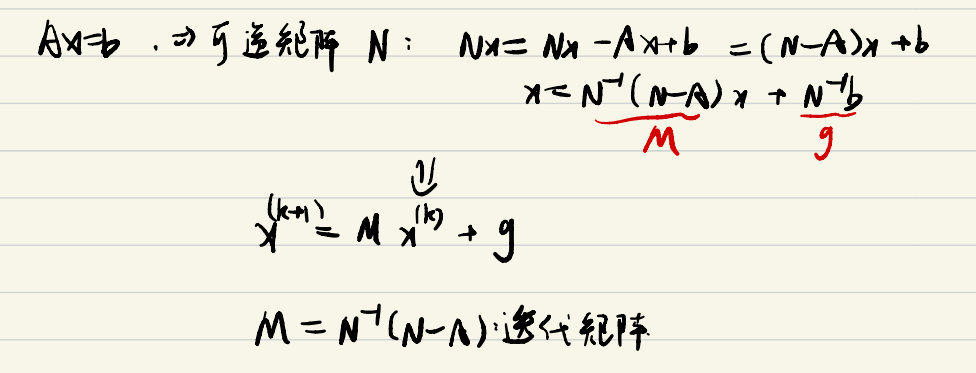 Ax=b . ⇒ 可逆矩阵 N : Nx = Nx - Ax + b = (N-A)x + b
x = N⁻¹(N-A) x + N⁻¹b
M g
⇓
x^(k+1) = M x^(k) + g
M = N⁻¹(N-A) : 迭代矩阵